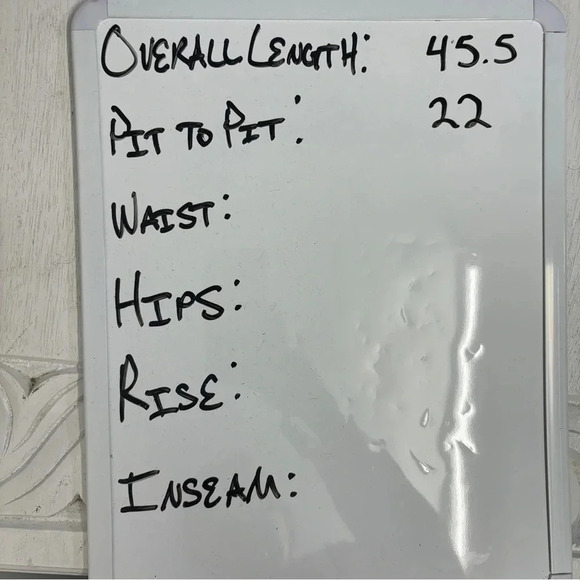 OVERALL LENGTH: 45.5
PIT TO PIT: 22
WAIST:
HIPS:
RISE:
INSEAM: